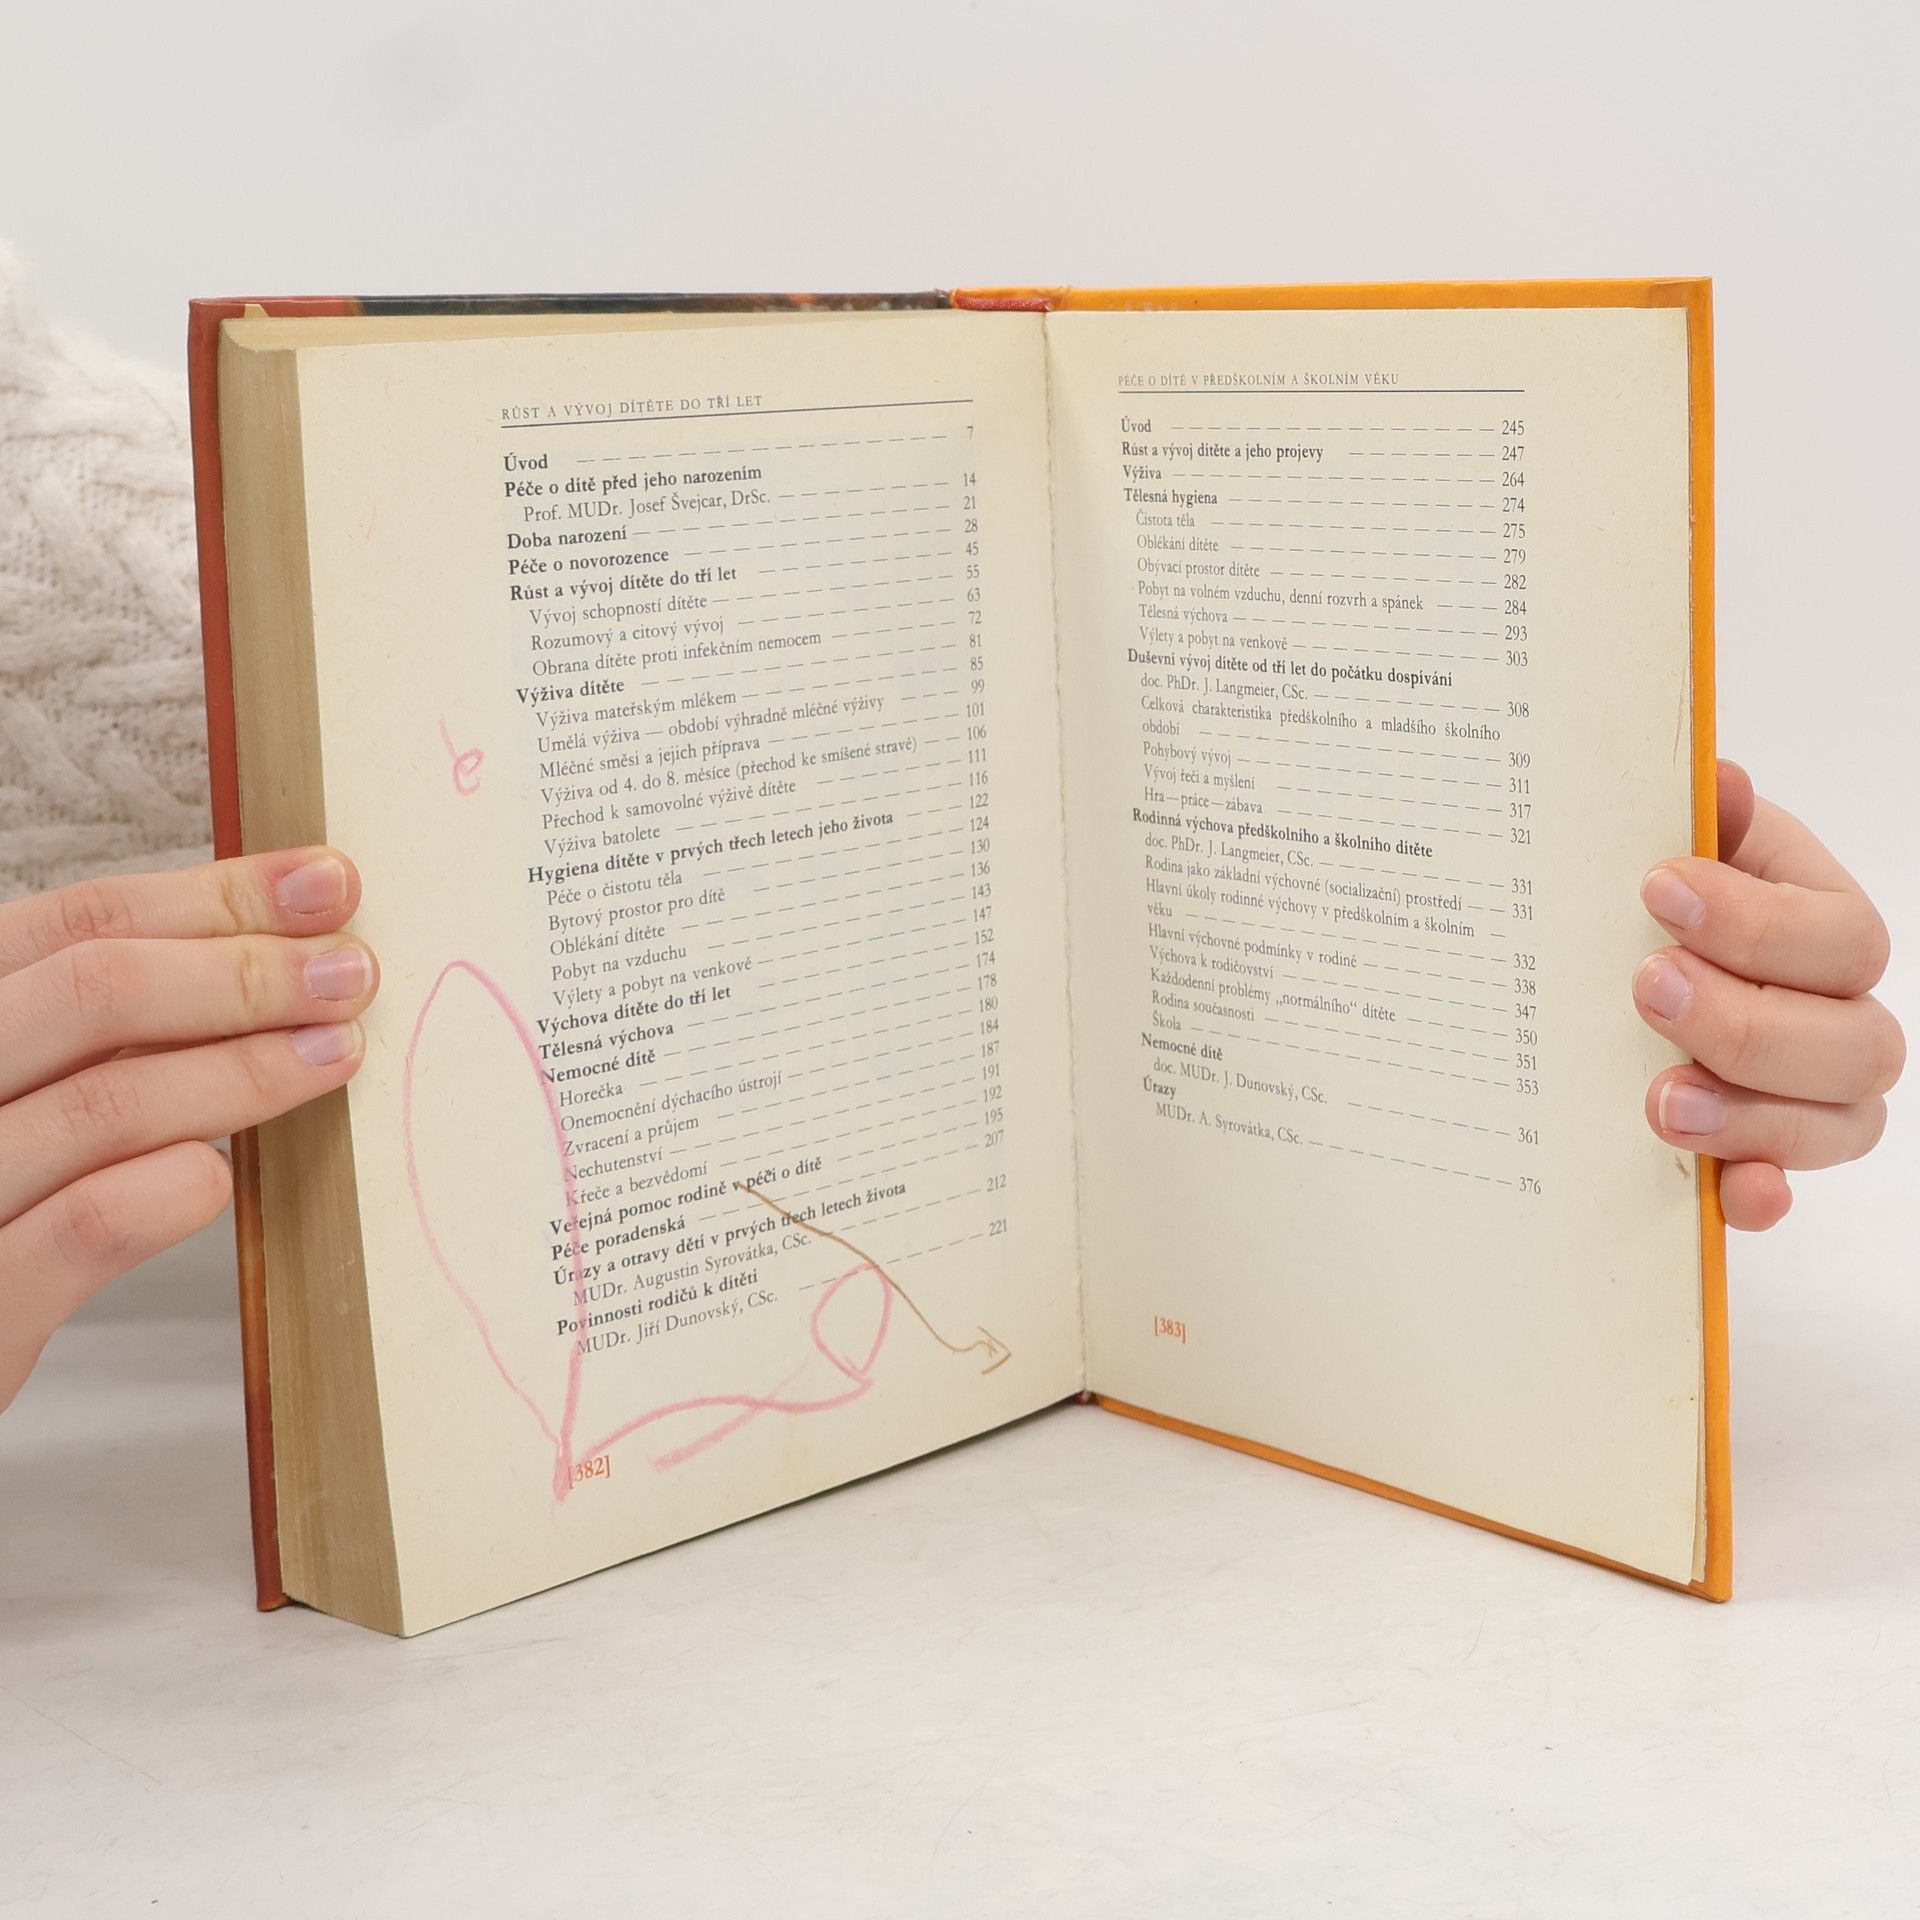 RŮST A VÝVOJ DÍTĚTE DO TŘÍ LET
Úvod — — — — — — — — — — — 7
Péče o dítě před jeho narozením
Prof. MUDr. Josef Švejcar, DrSc. — — — — — — 14
Doba narození — — — — — — — — — — 21
Péče o novorozence — — — — — — — — 28
Růst a vývoj dítěte do tří let — — — — — — 45
Vývoj schopností dítěte — — — — — — — 55
Rozumový a citový vývoj — — — — — — — 63
Obrana dítěte proti infekčním nemocem — — — — 72
Výživa dítěte — — — — — — — — — — 81
Výživa mateřským mlékem — — — — — — — 85
Umělá výživa — období výhradně mléčné výživy — — — 99
Mléčné směsi a jejich příprava — — — — — — 101
Výživa od 4. do 8. měsíce (přechod ke smíšené stravě) — — 106
Přechod k samovolné výživě dítěte — — — — — 111
Výživa batolete — — — — — — — — — 116
Hygiena dítěte v prvých třech letech jeho života — — — 122
Péče o čistotu těla — — — — — — — — 124
Bytový prostor pro dítě — — — — — — — 130
Oblékání dítěte — — — — — — — — — 136
Pobyt na vzduchu — — — — — — — — 143
Výlety a pobyt na venkově — — — — — — — 147
Výchova dítěte do tří let — — — — — — — 152
Tělesná výchova — — — — — — — — — 174
Nemocné dítě — — — — — — — — — — 178
Horečka — — — — — — — — — — 180
Onemocnění dýchacího ústrojí — — — — — — 184
Zvracení a průjem — — — — — — — — 187
Nechutenství — — — — — — — — — 191
Křeče a bezvědomí — — — — — — — — 192
Veřejná pomoc rodině v péči o dítě — — — — — 195
Péče poradenská — — — — — — — — — 207
Úrazy a otravy dětí v prvých třech letech života
MUDr. Augustin Syrovátka, CSc. — — — — — 212
Povinnosti rodičů k dítěti
MUDr. Jiří Dunovský, CSc. — — — — — — 221
[382]
PÉČE O DÍTĚ V PŘEDŠKOLNÍM A ŠKOLNÍM VĚKU
Úvod — — — — — — — — — — — — — 245
Růst a vývoj dítěte a jeho projevy — — — — — — 247
Výživa — — — — — — — — — — — — — 264
Tělesná hygiena — — — — — — — — — — — 274
Čistota těla — — — — — — — — — — — 275
Oblékání dítěte — — — — — — — — — — 279
Obývací prostor dítěte — — — — — — — — 282
Pobyt na volném vzduchu, denní rozvrh a spánek — — — 284
Tělesná výchova — — — — — — — — — — 293
Výlety a pobyt na venkově — — — — — — — — 303
Duševní vývoj dítěte od tří let do počátku dospívání
doc. PhDr. J. Langmeier, CSc. — — — — — — — 308
Celková charakteristika předškolního a mladšího školního
období — — — — — — — — — — — — 309
Pohybový vývoj — — — — — — — — — — 311
Vývoj řeči a myšlení — — — — — — — — — 317
Hra—práce—zábava — — — — — — — — — 321
Rodinná výchova předškolního a školního dítěte
doc. PhDr. J. Langmeier, CSc. — — — — — — — 331
Rodina jako základní výchovné (socializační) prostředí — — 331
Hlavní úkoly rodinné výchovy v předškolním a školním —
věku — — — — — — — — — — — — 332
Hlavní výchovné podmínky v rodině — — — — — — 338
Výchova k rodičovství — — — — — — — — 347
Každodenní problémy „normálního“ dítěte — — — — 350
Rodina současnosti — — — — — — — — — 351
Škola — — — — — — — — — — — — 353
Nemocné dítě
doc. MUDr. J. Dunovský, CSc. — — — — — — 361
Úrazy
MUDr. A. Syrovátka, CSc. — — — — — — — 376
[383]